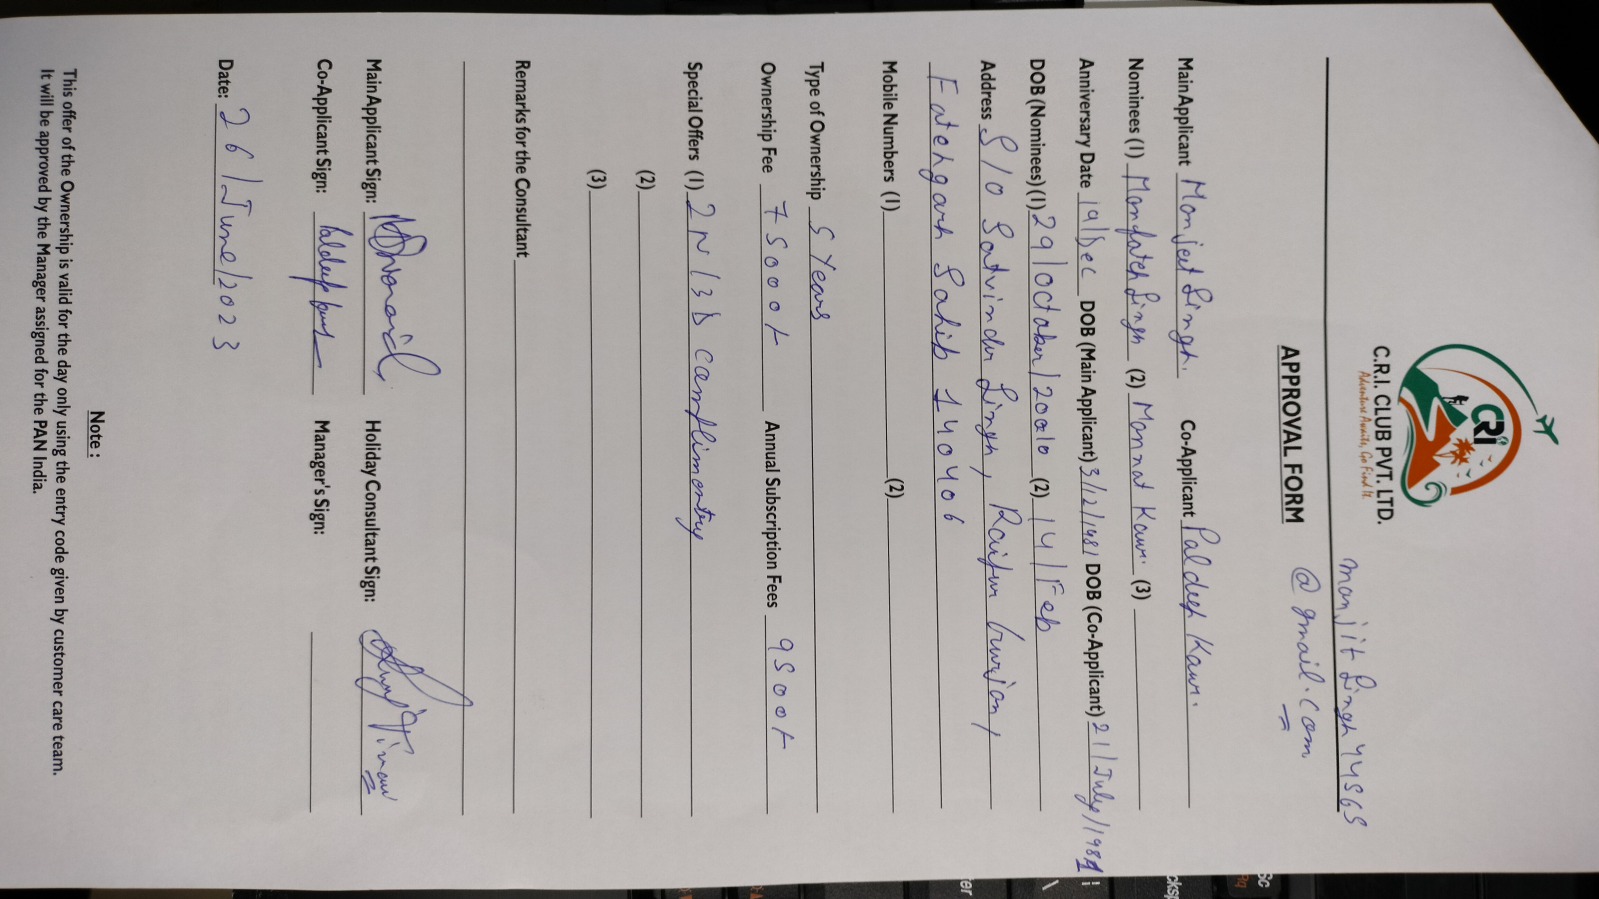 CRI
C.R.I. CLUB PVT. LTD.
Adventure Awaits, Go Find It.
manjit singh 44565
@gmail.com
APPROVAL FORM
Main Applicant Manjeet Singh. Co-Applicant Paldeep Kaur.
Nominees (1) Manfateh Singh (2) Mannat Kaur. (3)
Anniversary Date 19/Dec DOB (Main Applicant) 3/12/1981 DOB (Co-Applicant) 21/July/1981
DOB (Nominees) (1) 29/October/2010 (2) 14/Feb
Address S/O Satvinder Singh, Raipur
Fatehgarh Sahib 140406
Mobile Numbers (1) (2)
Type of Ownership 5 Years
Ownership Fee 75000/- Annual Subscription Fees 9500/-
Special Offers (1) 2N/3D complimentry
(2)
(3)
Remarks for the Consultant
Main Applicant Sign: Holiday Consultant Sign:
Co-Applicant Sign: Paldeep Kaur Manager's Sign:
Date: 26/June/2023
Note :
This offer of the Ownership is valid for the day only using the entry code given by customer care team.
It will be approved by the Manager assigned for the PAN India.